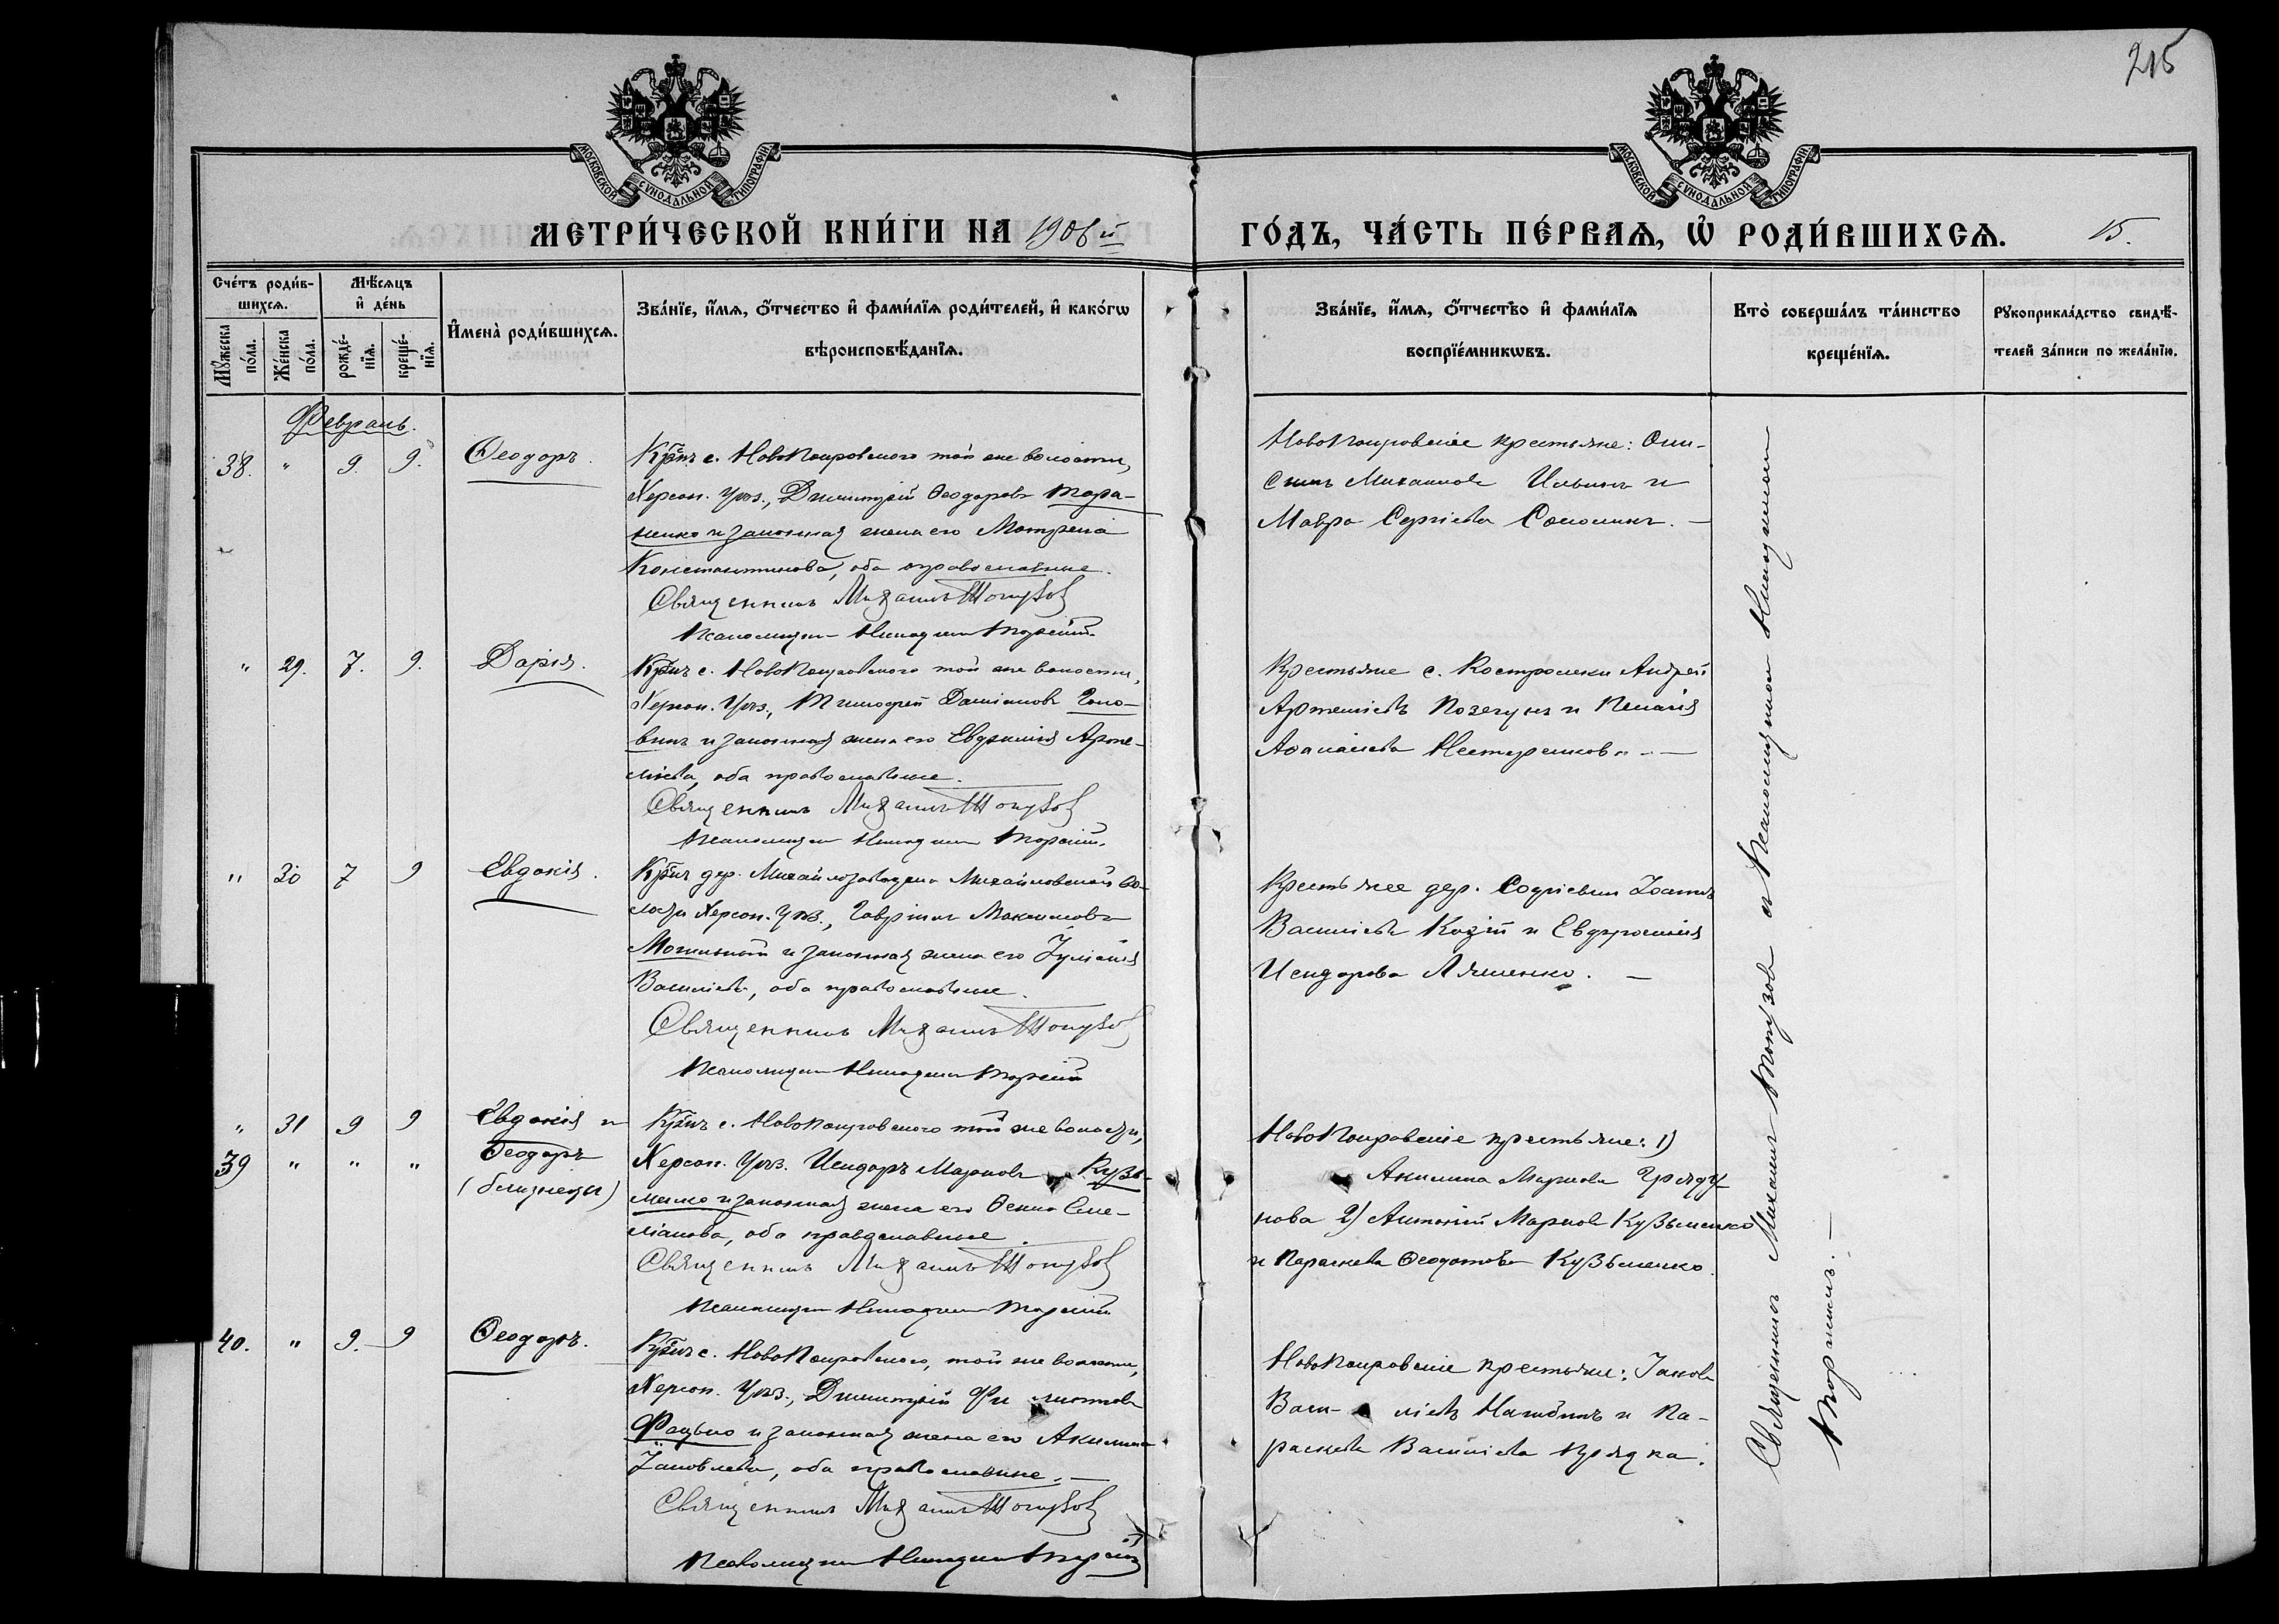 215
МОСКОВСКОЙ СУНОДАЛЬНОЙ ТИПОГРАФІИ
МОСКОВСКОЙ СУНОДАЛЬНОЙ ТИПОГРАФІИ
МЕТРИ́ЧЕСКОЙ КНИ́ГИ НА 1906й ГО́ДЪ, ЧА́СТЬ ПЕ́РВАѦ, Ѡ҆ РОДИ́ВШИХСѦ. 15.
Сче́тъ роди́в-
шихсѧ.
Мѣ́сѧцъ
и҆ де́нь
Мꙋ́жеска по́ла.
Же́нска по́ла.
рожде́-
нїѧ.
креще́-
нїѧ.
И҆мена̀ роди́вшихсѧ.
Зва́нїе, и҆́мѧ, ѻ҆́тчество и҆ фами́лїѧ роди́телей, и҆ како́гѡ
вѣроисповѣ́данїѧ.
Зва́нїе, и҆́мѧ, ѻ҆́тчество и҆ фами́лїѧ
воспрїе́мникѡвъ.
Кто̀ соверша́лъ та́инство
креще́нїѧ.
Рꙋкоприкла́дство свидѣ́-
телей за́писи по жела́нїю.
Февраль.
38. " 9. 9. Ѳеодоръ.
Кр-нъ с. НовоПокровскаго той же волости,
Херсон. Уѣз., Димитрій Ѳеодоровъ Тара-
ненко и законная жена его Матрена
Константинова, оба православные.
Священникъ Михаилъ Топузовъ
Псаломщикъ Никодимъ Торскій
НовоПокровскіе крестьяне: Они-
симъ Михаиловъ Ильинъ и
Мавра Сергіева Саломинъ. —
" 29. 7. 9. Дарія.
Кр-нъ с. НовоПокровскаго той же волости,
Херсон. Уѣз., Тимофей Даміановъ Голо-
винъ и законная жена его Евдокія Арте-
міева, оба православные.
Священникъ Михаилъ Топузовъ
Псаломщикъ Никодимъ Торскій.
Крестьяне с. Костромки Андрей
Артеміевъ Козегунъ и Пелагія
Аѳанасіева Нестеренкова. —
" 30 7 9 Евдокія.
Кр-нъ дер. Михайлозаводска Михайловской во-
лости Херсон. Уѣз., Гавріилъ Максимовъ
Могильный и законная жена его Іуліанія
Василіева, оба православные.
Священникъ Михаилъ Топузовъ
Псаломщикъ Никодимъ Торскій
Крестьяне дер. Софіевки Іоаннъ
Василіевъ Козій и Евфросинія
Исидорова Ляшенко. —
" 31 9 9 Евдокія и
39 " " " Ѳеодоръ
(близнецы)
Кр-нъ с. НовоПокровскаго той же волости,
Херсон. Уѣз. Исидоръ Марковъ Кузь-
менко и законная жена его Ѳекла Еме-
ліанова, оба православные.
Священникъ Михаилъ Топузовъ
Псаломщикъ Никодимъ Торскій
НовоПокровскіе крестьяне: 1)
Акилина Маркова Гряду-
нова 2) Антоній Марковъ Кузьменко
и Параскева Ѳеодотова Кузьменко.
40. " 9. 9 Ѳеодоръ.
Кр-нъ с. НовоПокровскаго, той же волости,
Херсон. Уѣз., Димитрій Филиповъ
Фацько и законная жена его Акилина
Іаковлева, оба православные. —
Священникъ Михаилъ Топузовъ
Псаломщикъ Никодимъ Торскій
НовоПокровскіе крестьяне: Іаковъ
Васи- ліевъ Нагибинъ и Па-
раскева Василіева Крядка.
Священникъ Михаилъ Топузовъ съ Псаломщикомъ Никодимомъ
Торскимъ. —